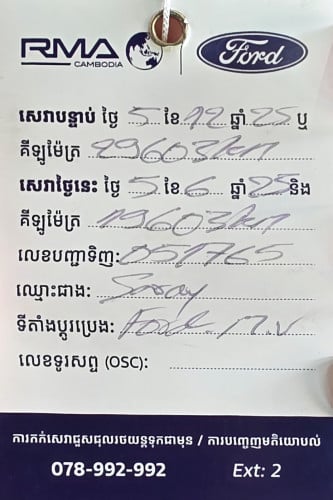 RMA
CAMBODIA
Ford
សេវាបន្ទាប់ ថ្ងៃ 5 ខែ 12 ឆ្នាំ 25 ឬ
គីឡូម៉ែត្រ 29603km
សេវាថ្ងៃនេះ ថ្ងៃ 5 ខែ 6 ឆ្នាំ 25 និង
គីឡូម៉ែត្រ 19603km
លេខបញ្ជាទិញ: 051765
ឈ្មោះជាង:
ទីតាំងប្តូរប្រេង: Ford M.V
លេខទូរសព្ទ (OSC):
ការកក់សេវាជួសជុលរថយន្តទុកជាមុន / ការបញ្ចេញមតិយោបល់
078-992-992 Ext: 2